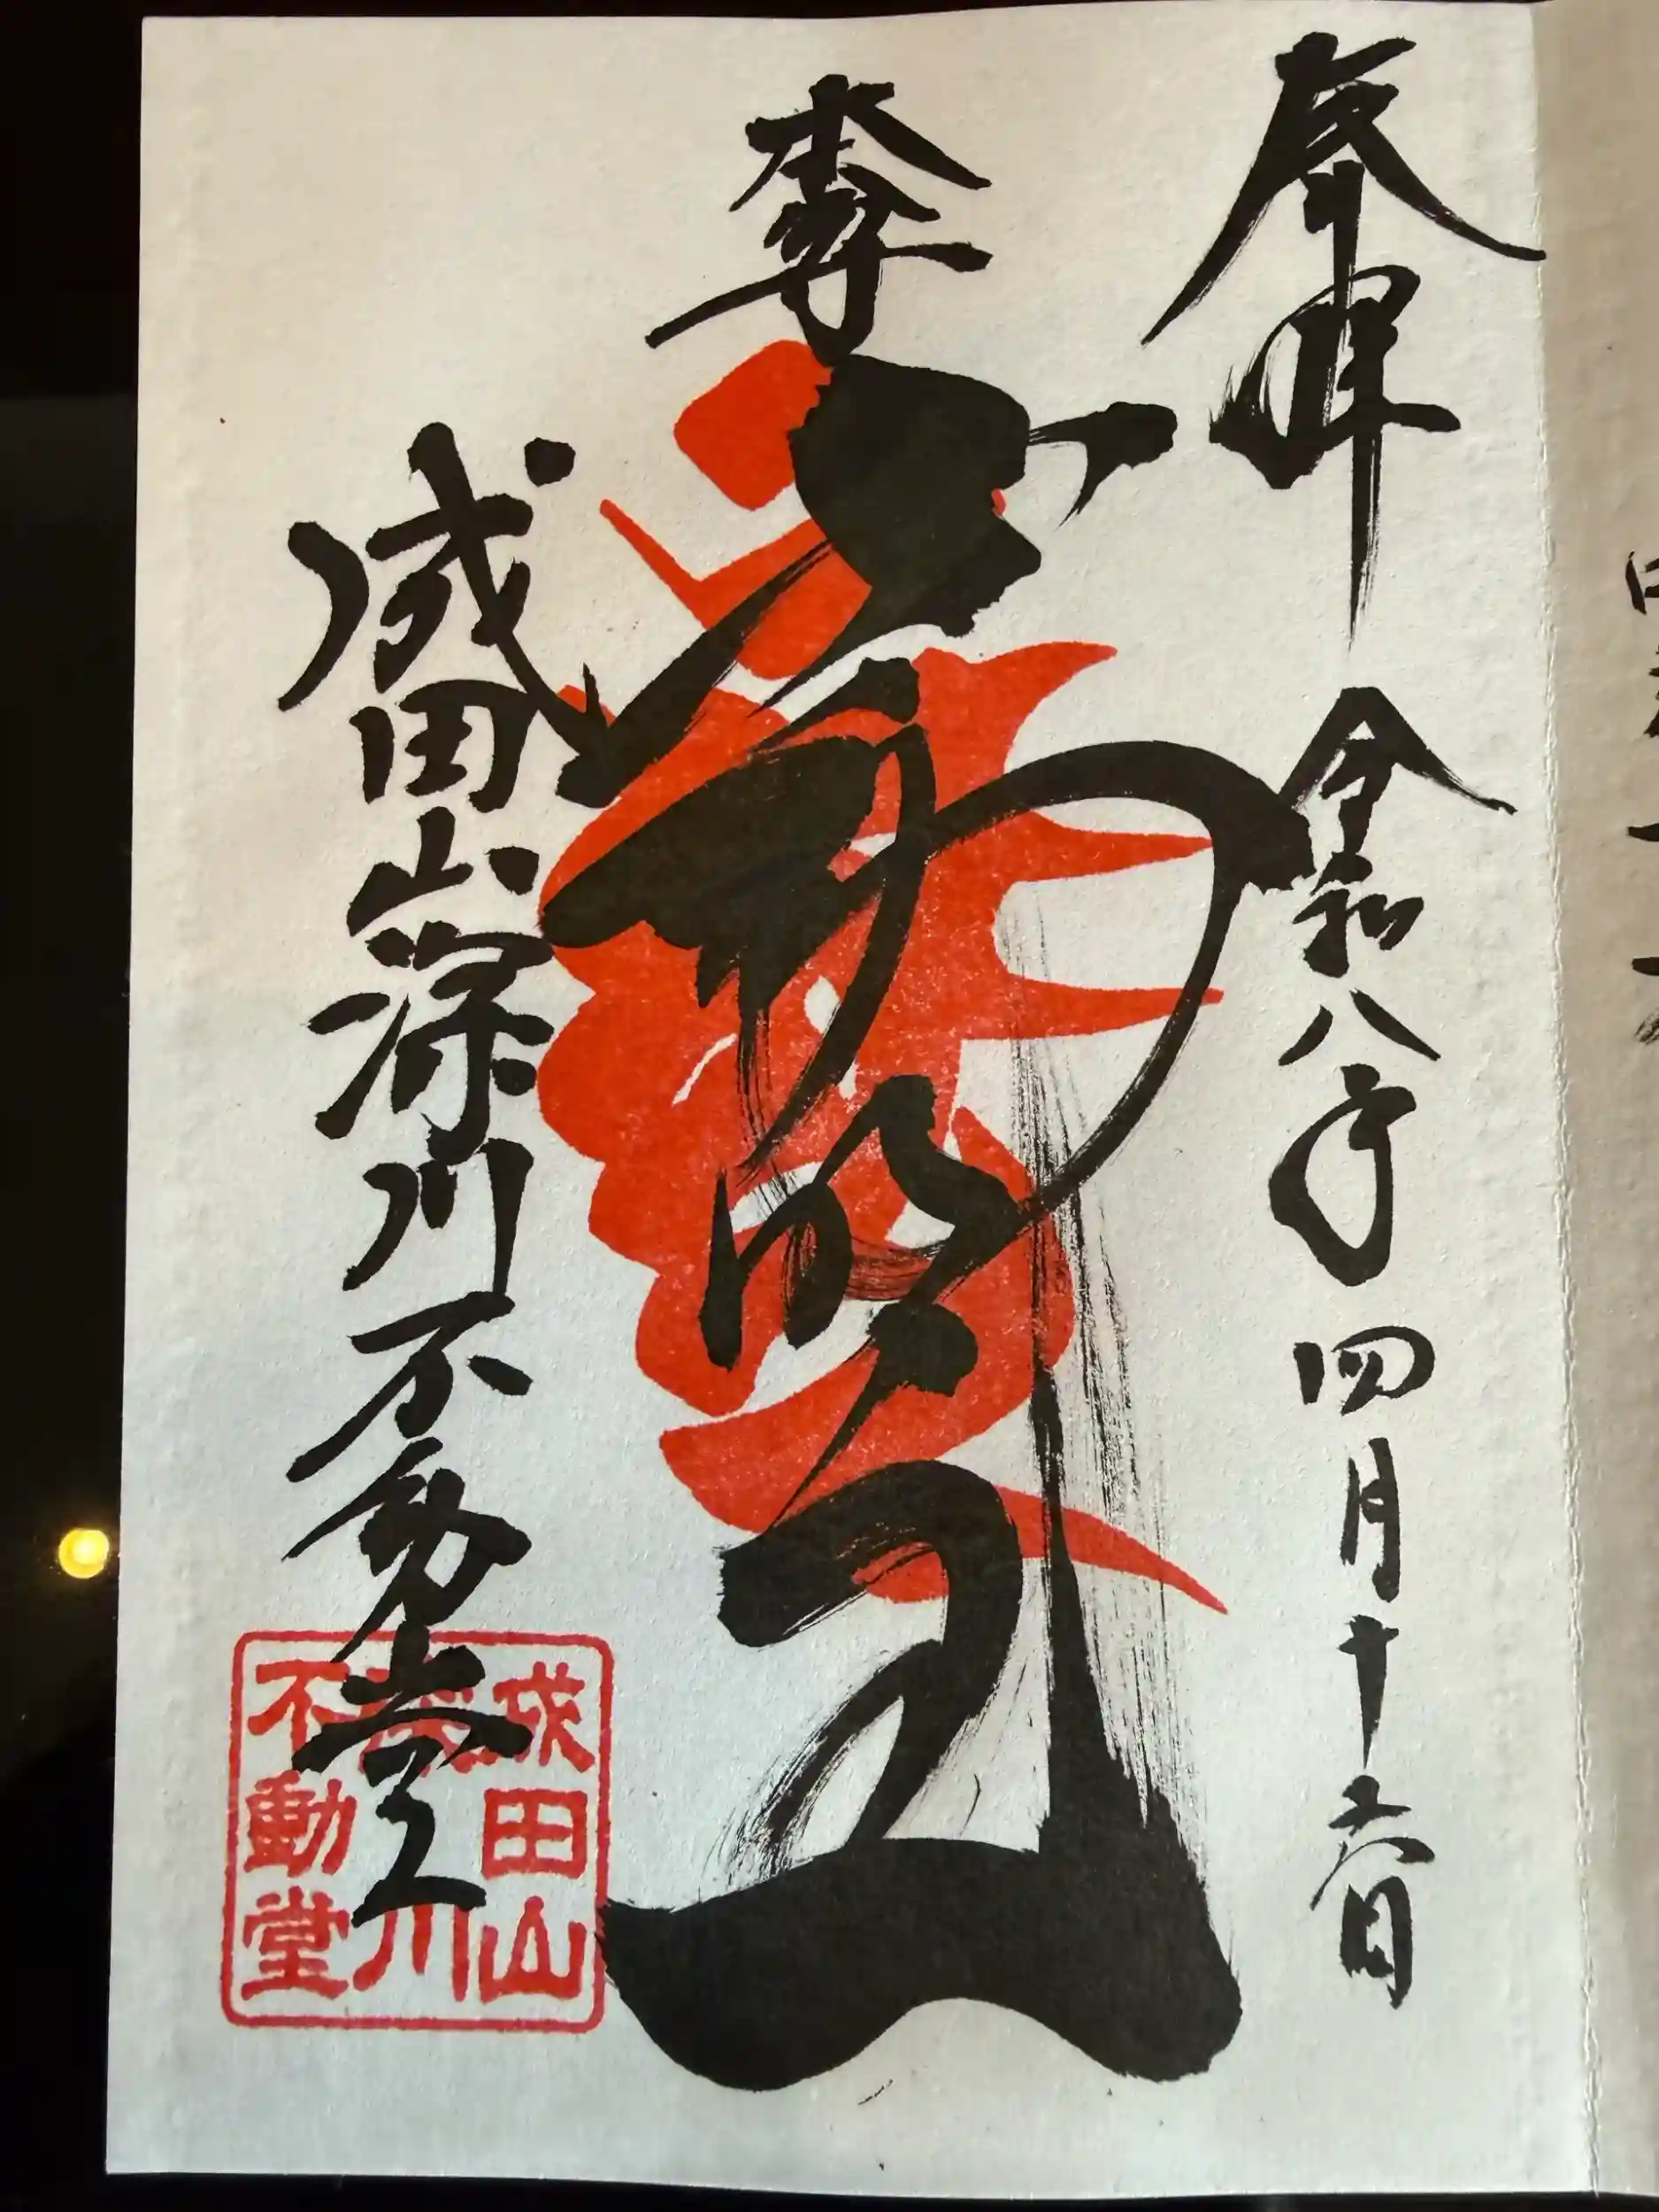 奉拝 令和八年四月十六日
本尊 不動明王
成田山深川不動堂
成田山
深川
不動堂